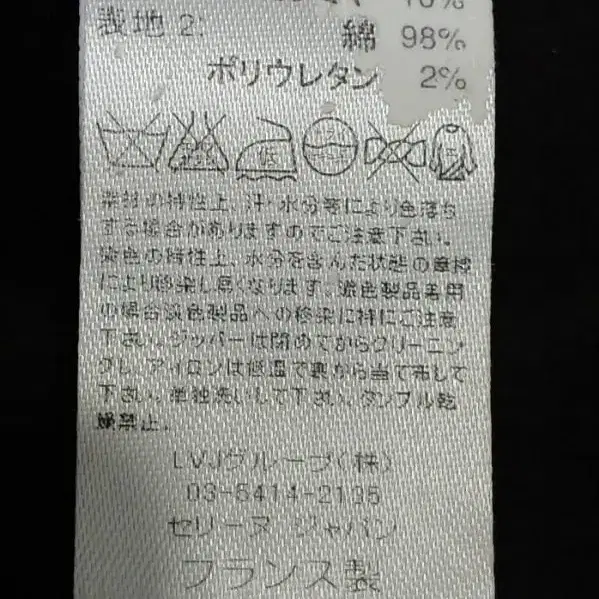 10%
表地 2: 綿 98%
ポリウレタン 2%
素材の特性上、汗・水分等により色落ち
する場合がありますのでご注意下さい。
染色の特性上、水分を含んだ状態の摩擦
により移染し易くなります。淡色製品着用
の場合淡色製品への移染に特にご注意
下さい。ジッパーは閉めてからクリーニン
グし、アイロンは低温で裏から当て布して
下さい。単独洗いして下さい。タンブル乾
燥禁止。
LVJグループ(株)
03-5414-2135
セリーヌ ジャパン
フランス製